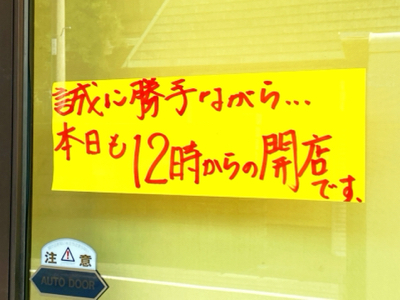 誠に勝手ながら...
本日も12時からの開店です、
注意
AUTO DOOR